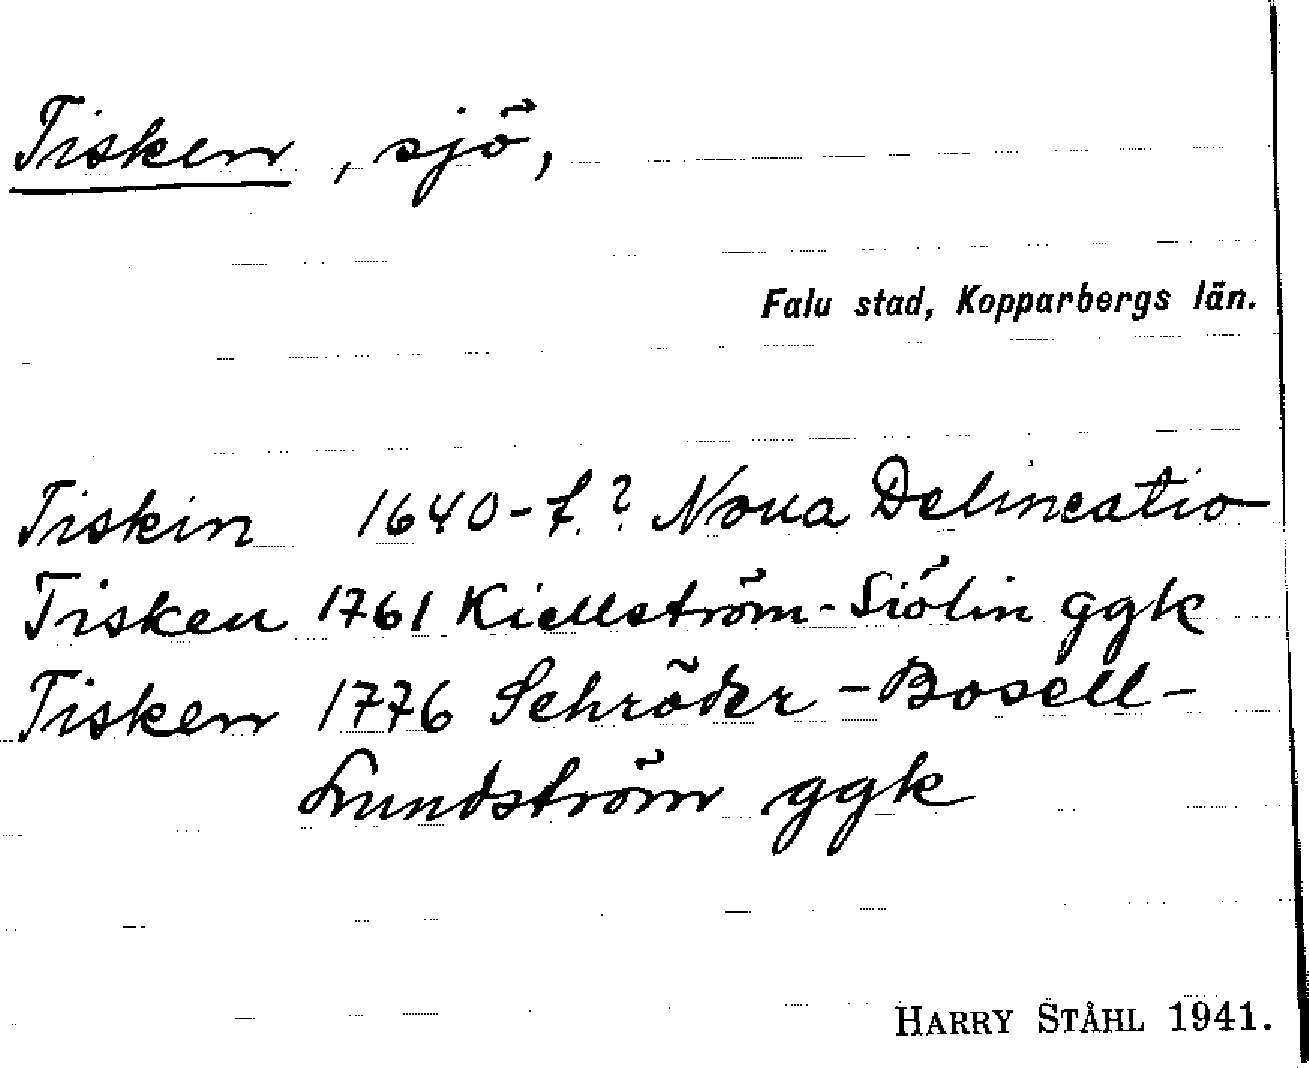 Tisken, sjö,
Falu stad, Kopparbergs län.
Tiskin 1640-t.? Noua Delineatio
Tisken 1761 Kiellström-Siölin ggk
Tisken 1776 Schröder-Bosell-
Lundström ggk
HARRY STÅHL 1941.